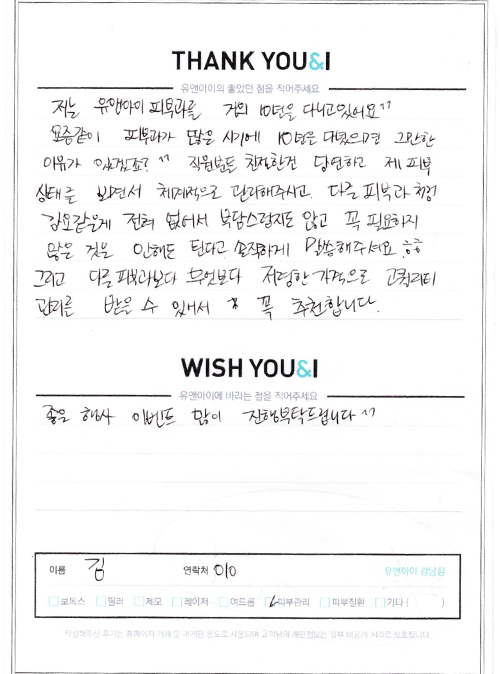 THANK YOU&I
유앤아이의 좋았던 점을 적어주세요
저는 유앤아이 피부과를 거의 10년을 다니고있어요^^
요즘같이 피부과가 많은 시기에 10년을 다녔으면 그만한
이유가 있겠죠? ^^ 직원분들 친절한건 당연하고 제 피부
상태를 보면서 체계적으로 관리해주시고. 다른 피부과처럼
강요같은게 전혀 없어서 부담스럽지도 않고 꼭 필요하지
않은 것은 안해도 된다고 솔직하게 말씀해주셔요 ㅎㅎ
그리고 다른피부과보다 무엇보다 저렴한가격으로 고퀄리티
관리를 받을 수 있어서 꼭 추천합니다.
WISH YOU&I
유앤아이에 바라는 점을 적어주세요
좋은 행사 이벤트 많이 진행부탁드립니다^^
이름 김 연락처 010 유앤아이 강남점
보톡스 필러 제모 레이저 여드름 피부관리 피부질환 기타 ( )
작성해주신 후기는 홈페이지 게재 및 마케팅 용도로 사용되며 고객님의 개인정보는 일부 비공개 처리로 보호됩니다.